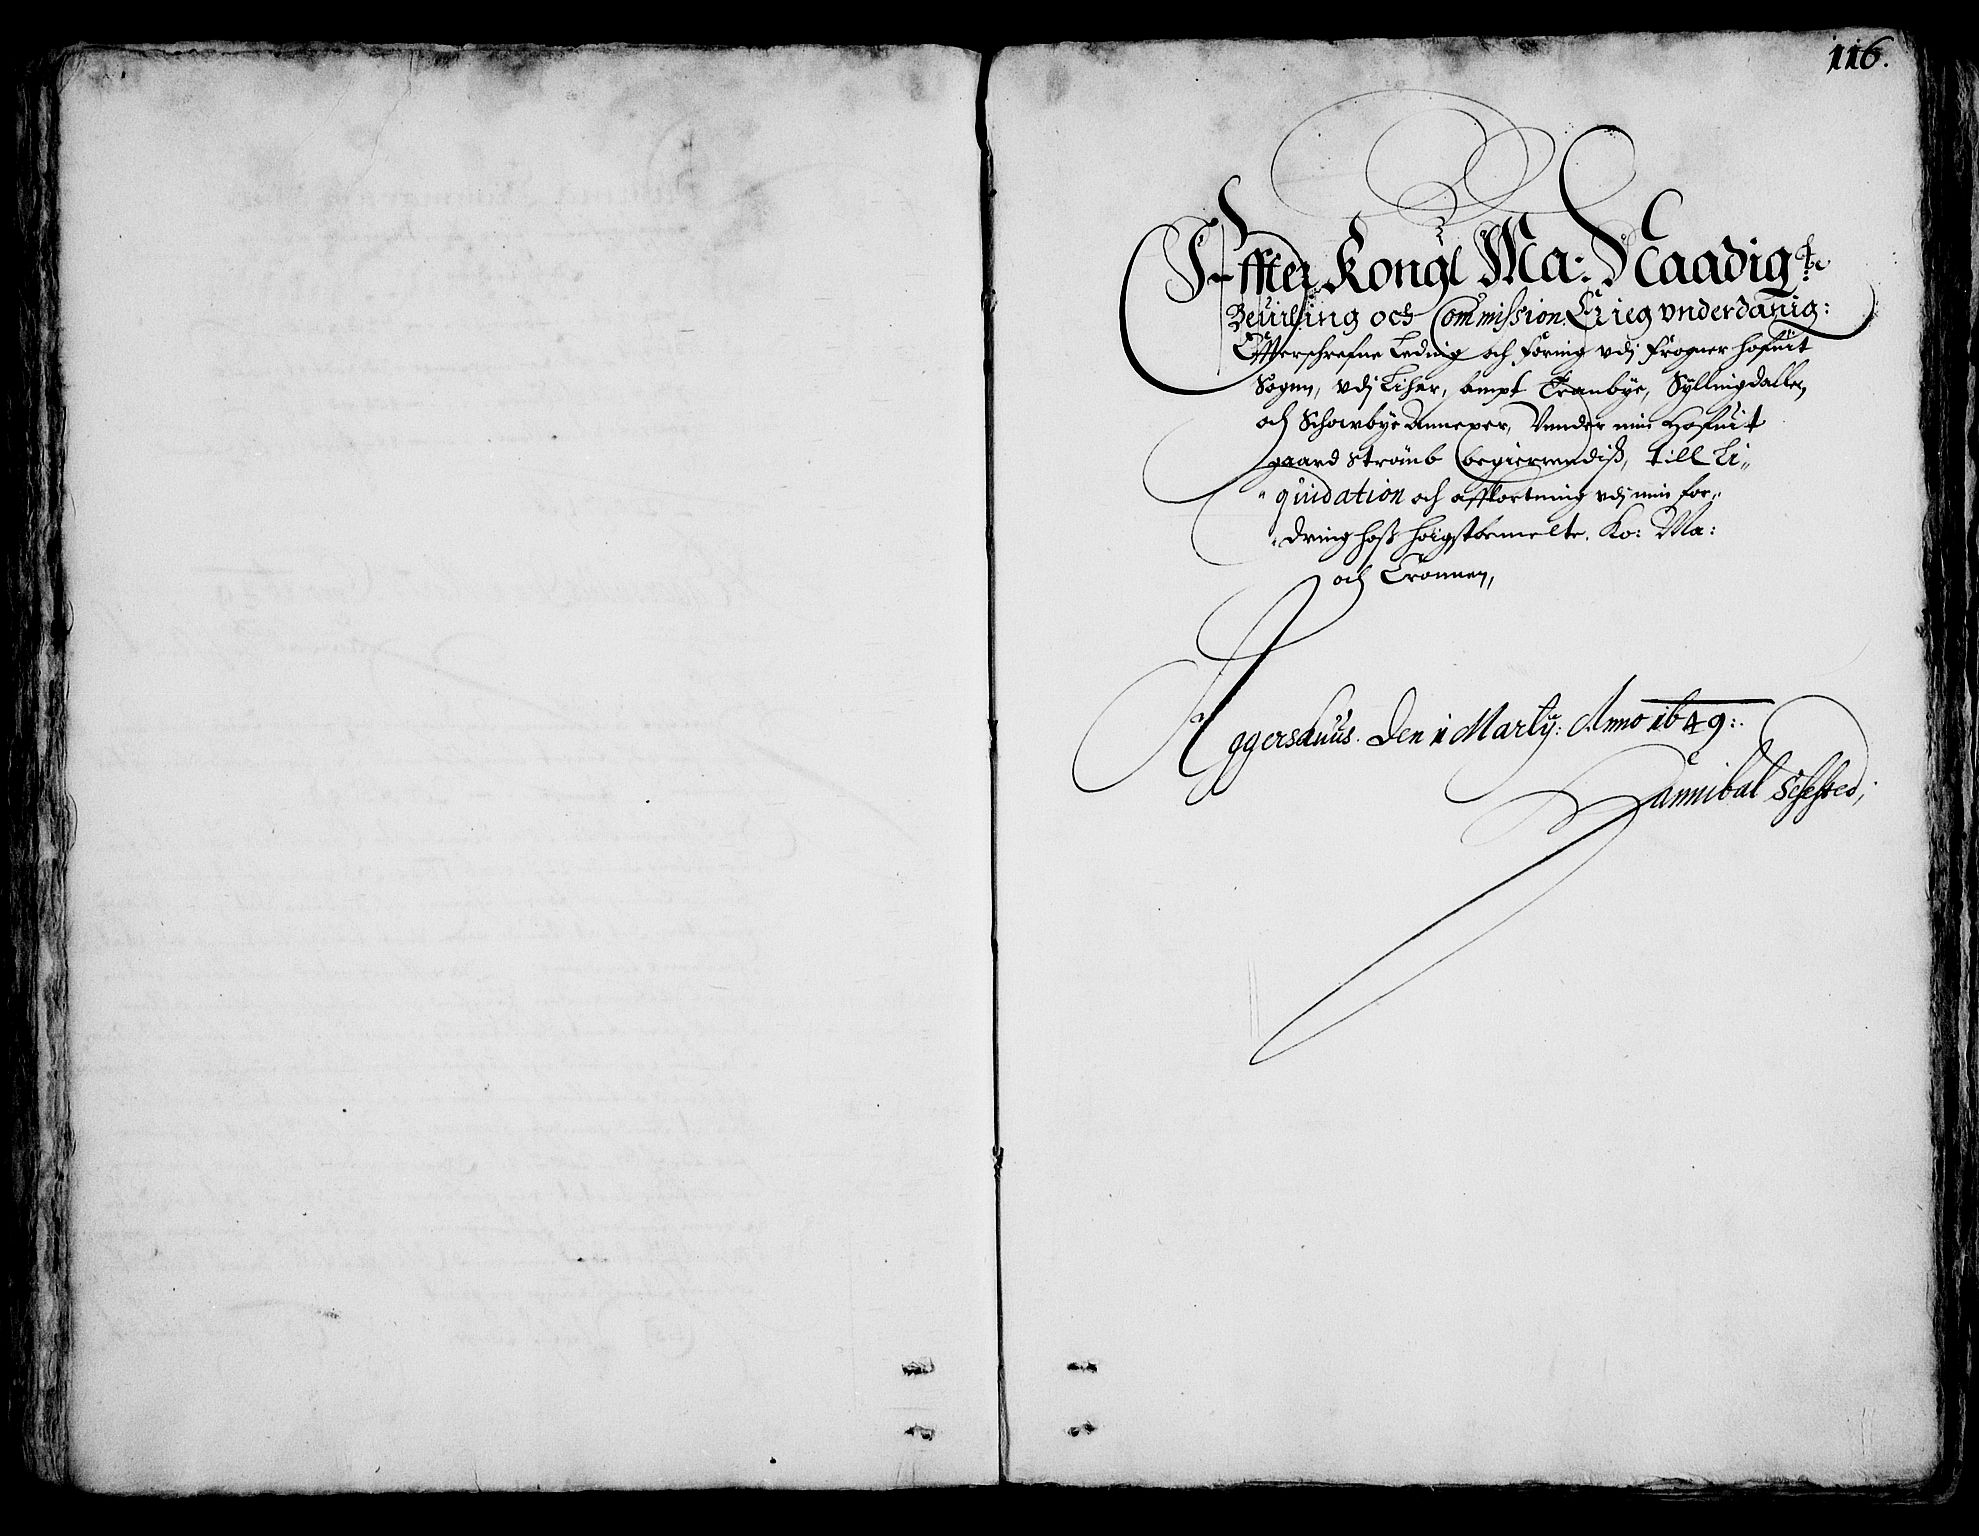 116.
Effter Kongl Ma: Naadigste
Beuilling och Commission. Er ieg vnderdanig:
Effterschrefne Leding och foring vdj frogner hofuit
Sogen, vdj Liher, sampt Tranbye, Syllingdallen,
och Schowbye Annexer, Vunder min Hofuit
gaard Strömb begierendis, till Li„
„quidation och affkortning vdj min for„
„dring hoss høigstbemelte. Ko: Ma:
och Cronnen,
Aggershuus. Den 1 Marty: Anno 1649:.
Hannibal Sehsted,